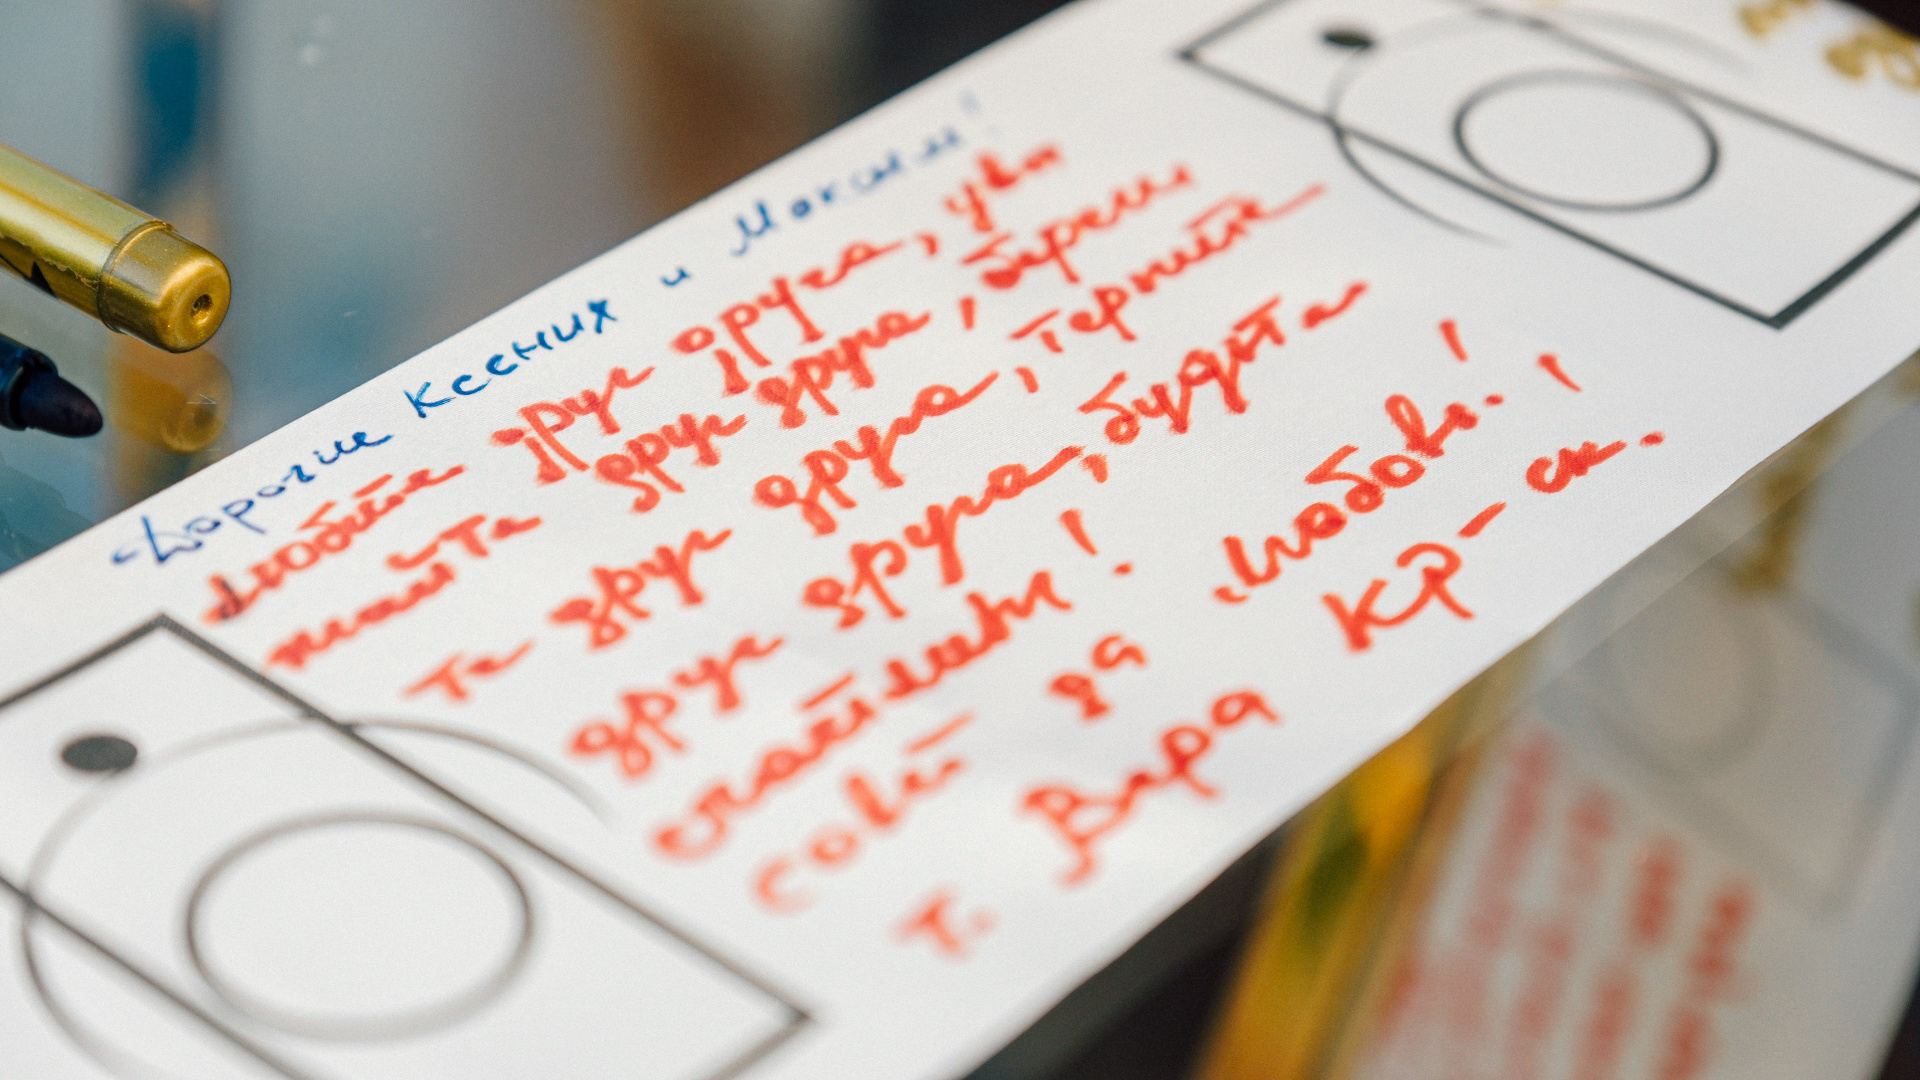 Дорогие Ксения и Максим!
Любите друг друга, ува
жайте друг друга, береги
те друг друга, терпите
друг друга, будьте
счастливы!
Совет да любовь!
Т. Вера Кр-ск.